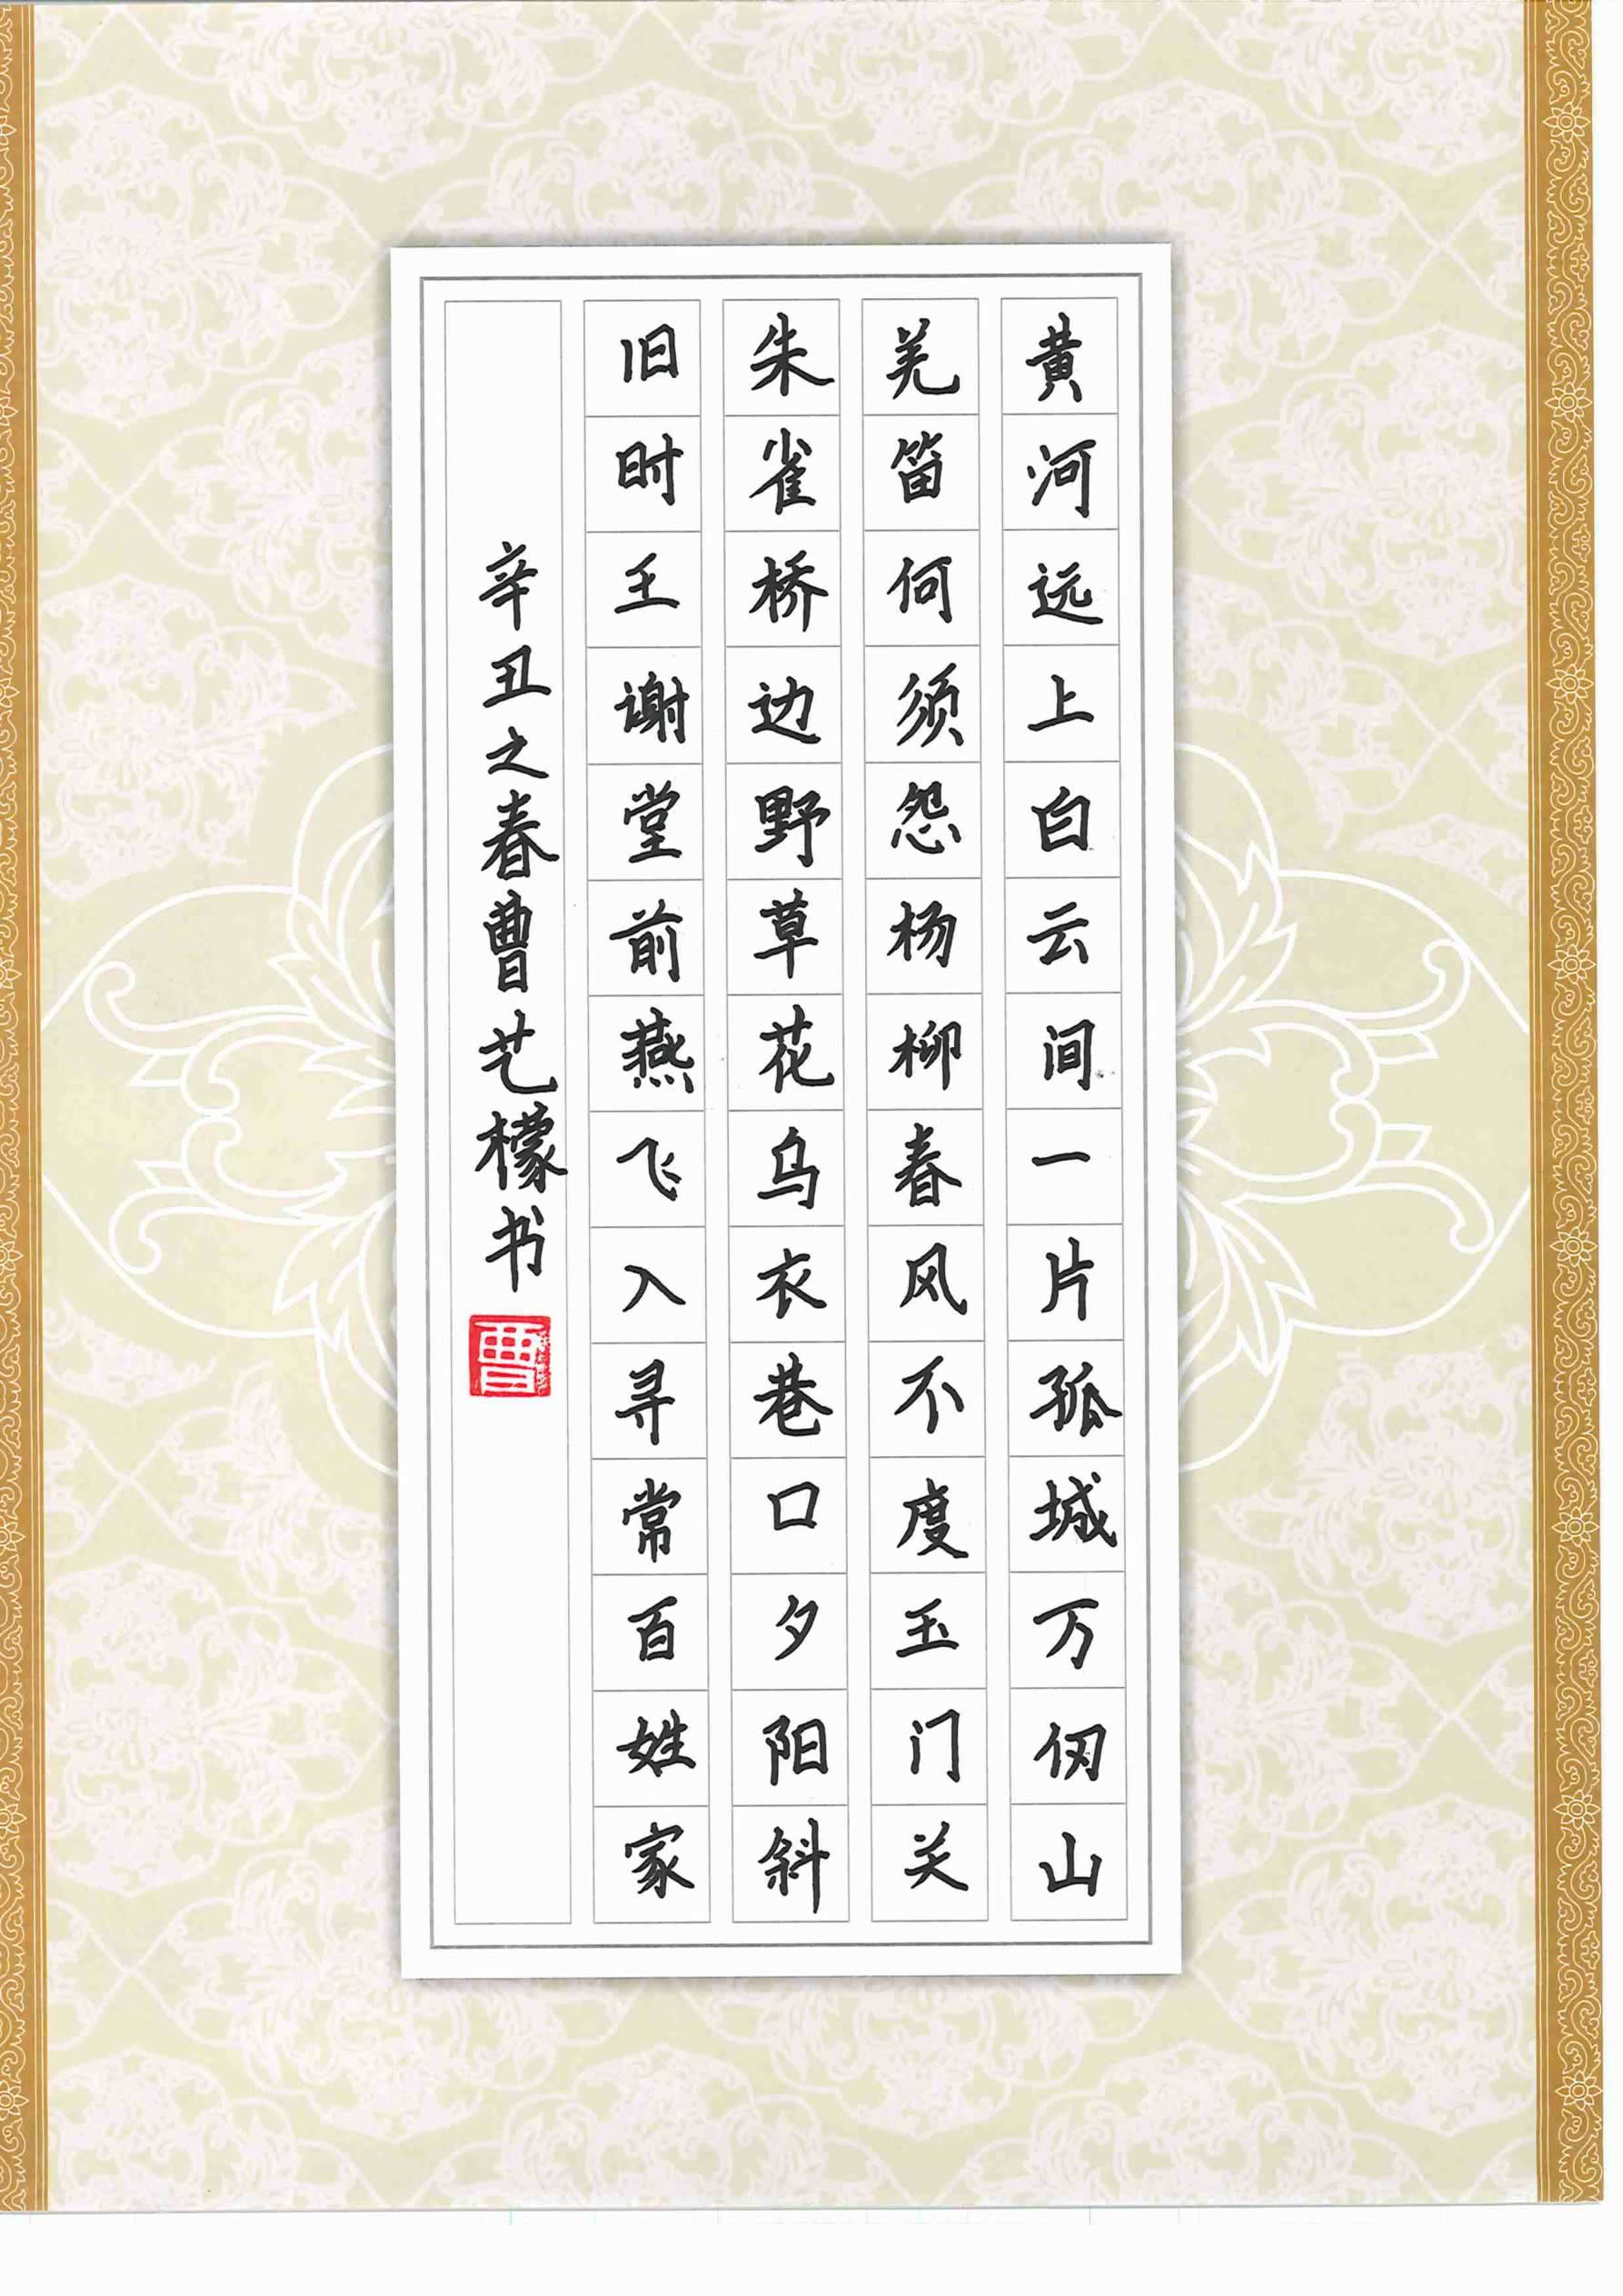 黄河远上白云间一片孤城万仞山
羌笛何须怨杨柳春风不度玉门关
朱雀桥边野草花乌衣巷口夕阳斜
旧时王谢堂前燕飞入寻常百姓家
辛丑之春曹艺檬书
曹